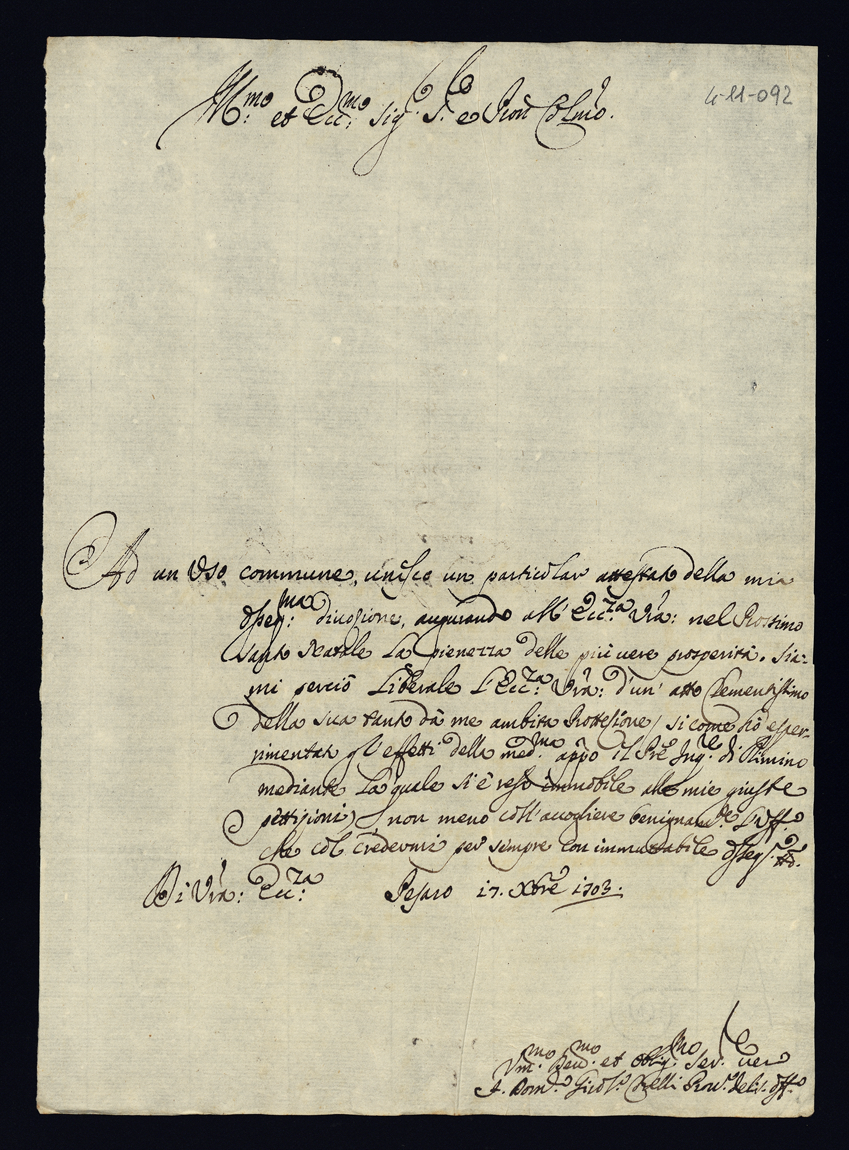 4-11-092
Ill.mo et Ecc.mo Sig.r S.re e Pron Colmo.
Ad un Uso commune, unisco un particular attestato della mia
osseq.ma divozione, augurando all' Ecc.za Vra: nel Prossimo
Santo Natale la pienezza delle più vere prosperità. Sia-
mi perciò Liberale l'Ecc.za Vra: d'un' atto Clementissimo
della sua tanto dà me ambita Prottezione / si come hò esper-
rimentati gl'effetti della med.ma appo il Pre Inq.re di Rimino
mediante la quale si è reso immobile alle mie giuste
pettizioni / non meno coll' accogliere benignam.te l'Uff.o
che col credermi per sempre con immutabile osseq.o
Di Vra: Ecc.za Pesaro 17. Xbre 1703.
Um.mo Dev.mo et oblig.mo Ser.re vero
F. Dom.o